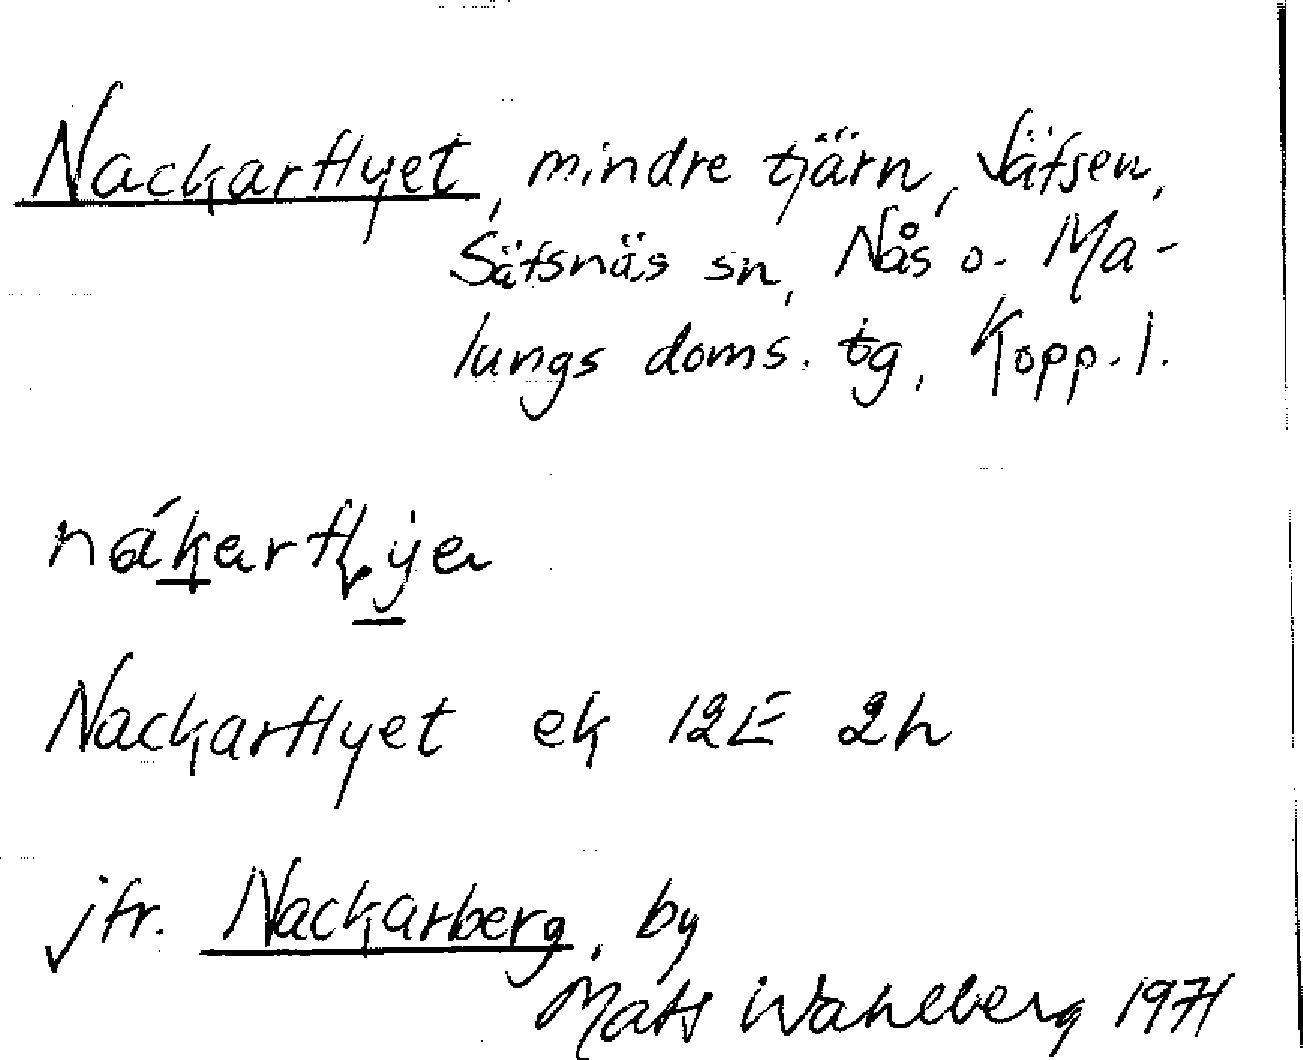 Nackarflyet, mindre tjärn, Säfsen,
Säfsnäs sn, Nås o. Ma-
lungs doms. tg, Kopp. l.
nákarflýe
Nackarflyet ek 12E 2h
jfr. Nackarberg, by
Mats Wahlberg 1971